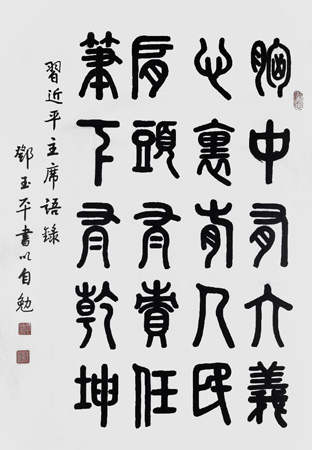 胸中有大義
心裏有人民
肩頭有責任
筆下有乾坤
習近平主席語錄
鄧玉平書以自勉